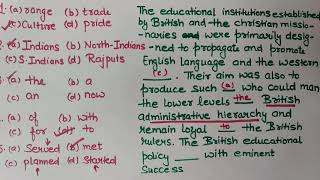 1. (a) range (b) trade
(c) Culture (d) pride
2. (a) Indians (b) North-Indians
(c) S.Indians (d) Rajputs
3. (a) the (b) a
(c) an (d) now
4. (a) of (b) with
(c) for (d) to
5. (a) Served (b) met
(c) planned (d) Started
The educational institutions established
by British and the christian missio-
naries and were primarily desig-
ned to propagate and promote
English language and the western
(c). Their aim was also to
produce such (a) who could man
the lower levels the British
administrative hierarchy and
remain loyal to the British
rulers. The British educational
policy ___ with eminent
Success